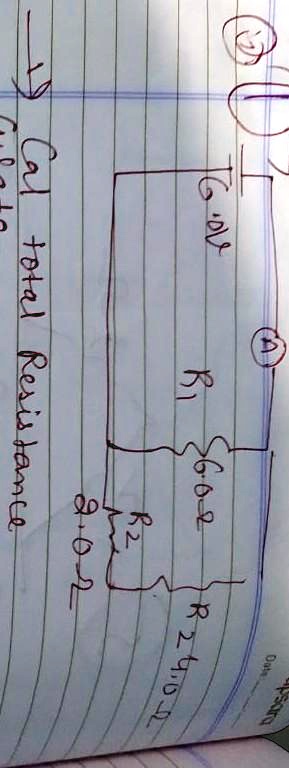 (2)
6.0V
A
R1
6.0Ω
R2
2.0Ω
R2 4.0Ω
→ Cal total Resistance
Date